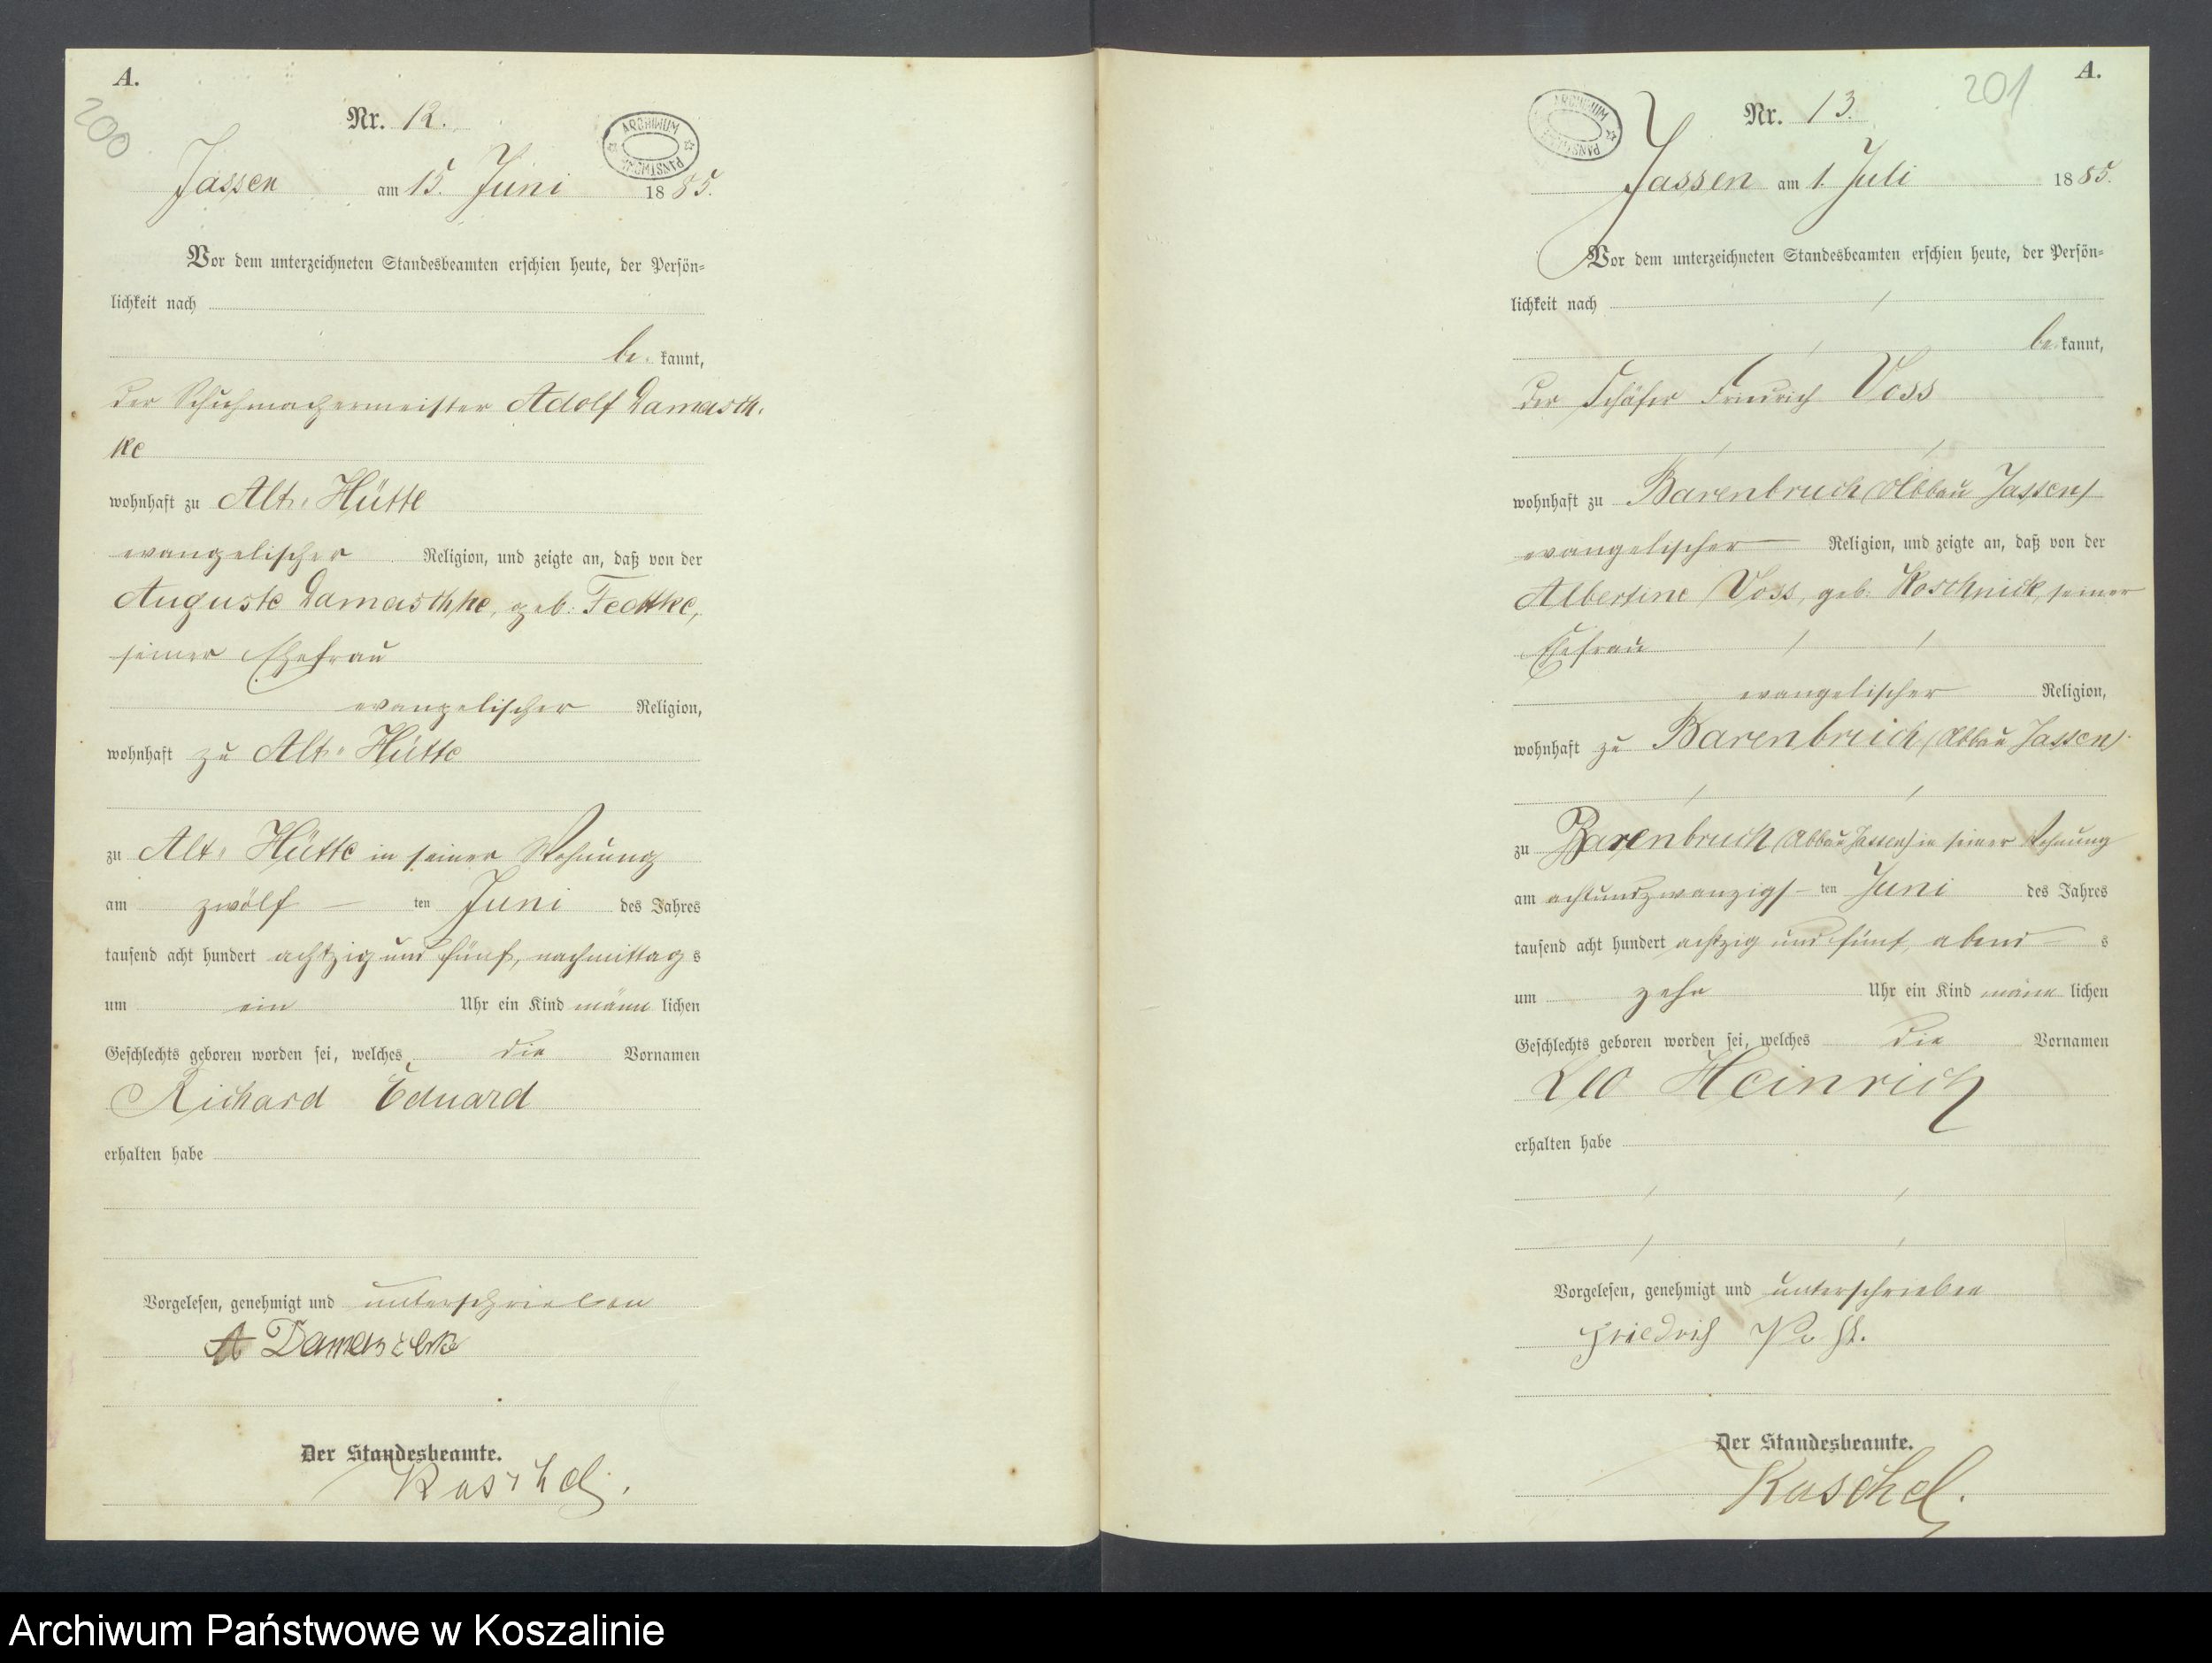 A.
200
Nr. 12.
ARCHIWUM PAŃSTWOWE
Jassen am 15. Juni 1885.
Vor dem unterzeichneten Standesbeamten erschien heute, der Persön-
lichkeit nach
be kannt,
der Schuhmachermeister Adolf Damasch-
ke
wohnhaft zu Alt-Hütte
evangelischer Religion, und zeigte an, daß von der
Auguste Damaschke, geb. Fedtke,
seiner Ehefrau
evangelischer Religion,
wohnhaft zu Alt-Hütte
zu Alt-Hütte in seiner Wohnung
am zwölf ten Juni des Jahres
tausend acht hundert achtzig und fünf, nachmittag s
um ein Uhr ein Kind männ lichen
Geschlechts geboren worden sei, welches die Vornamen
Richard Eduard
erhalten habe
Vorgelesen, genehmigt und unterschrieben
A Damaschke
Der Standesbeamte.
Kaschel.
A.
201
Nr. 13.
ARCHIWUM PAŃSTWOWE
Jassen am 1. Juli 1885.
Vor dem unterzeichneten Standesbeamten erschien heute, der Persön-
lichkeit nach
be kannt,
der Schäfer Friedrich Voss
wohnhaft zu Barenbruch (Abbau Jassen)
evangelischer Religion, und zeigte an, daß von der
Albertine Voss, geb. Koschnick, seiner
Ehefrau
evangelischer Religion,
wohnhaft zu Barenbruch (Abbau Jassen)
zu Barenbruch (Abbau Jassen) in seiner Wohnung
am achtundzwanzigs ten Juni des Jahres
tausend acht hundert achtzig und fünf, abend s
um zehn Uhr ein Kind männ lichen
Geschlechts geboren worden sei, welches die Vornamen
Leo Heinrich
erhalten habe
Vorgelesen, genehmigt und unterschrieben
Friedrich
Der Standesbeamte.
Kaschel.
Archiwum Państwowe w Koszalinie